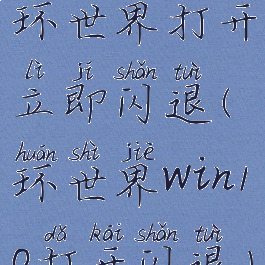 环世界打开
lì jí shǎn tuì
立即闪退(
huán shì jiè
环世界win1
dǎ kāi shǎn tuì
0打开闪退)